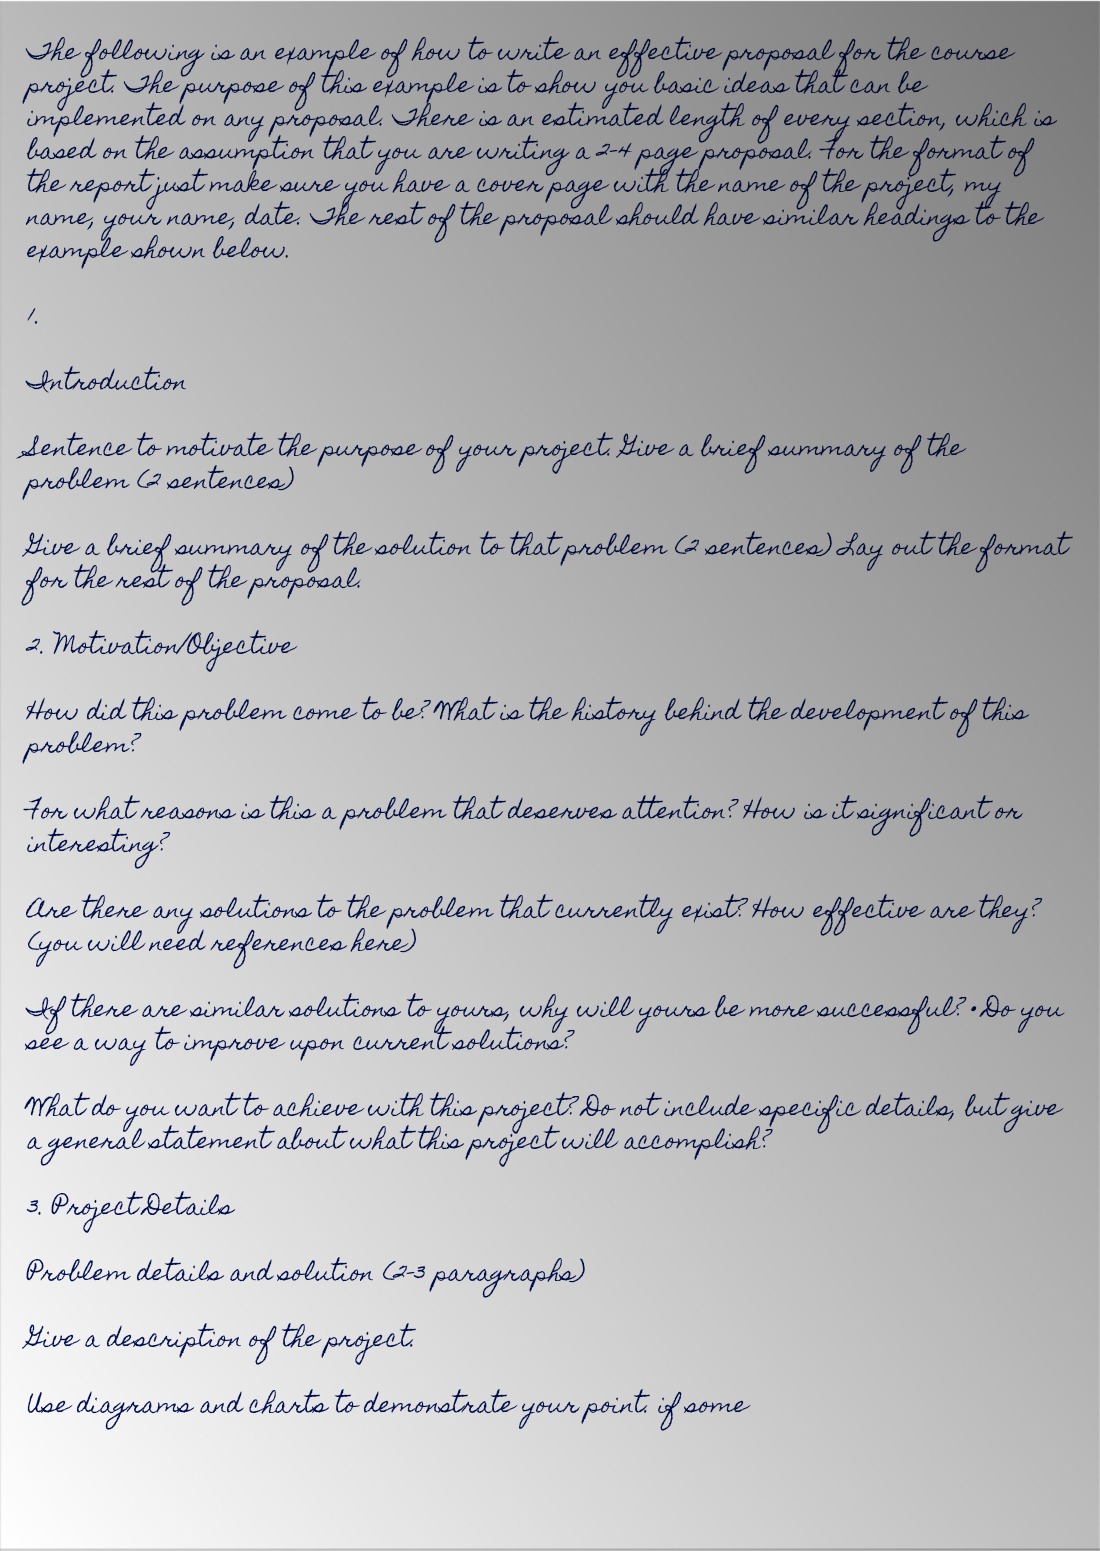 The following is an example of how to write an effective proposal for the course
project. The purpose of this example is to show you basic ideas that can be
implemented on any proposal. There is an estimated length of every section, which is
based on the assumption that you are writing a 2-4 page proposal. For the format of
the report just make sure you have a cover page with the name of the project, my
name, your name, date. The rest of the proposal should have similar headings to the
example shown below.
1.
Introduction
Sentence to motivate the purpose of your project. Give a brief summary of the
problem (2 sentences)
Give a brief summary of the solution to that problem (2 sentences) Lay out the format
for the rest of the proposal.
2. Motivation/Objective
How did this problem come to be? What is the history behind the development of this
problem?
For what reasons is this a problem that deserves attention? How is it significant or
interesting?
Are there any solutions to the problem that currently exist? How effective are they?
(you will need references here)
If there are similar solutions to yours, why will yours be more successful? • Do you
see a way to improve upon current solutions?
What do you want to achieve with this project? Do not include specific details, but give
a general statement about what this project will accomplish?
3. Project Details
Problem details and solution (2-3 paragraphs)
Give a description of the project.
Use diagrams and charts to demonstrate your point. if some